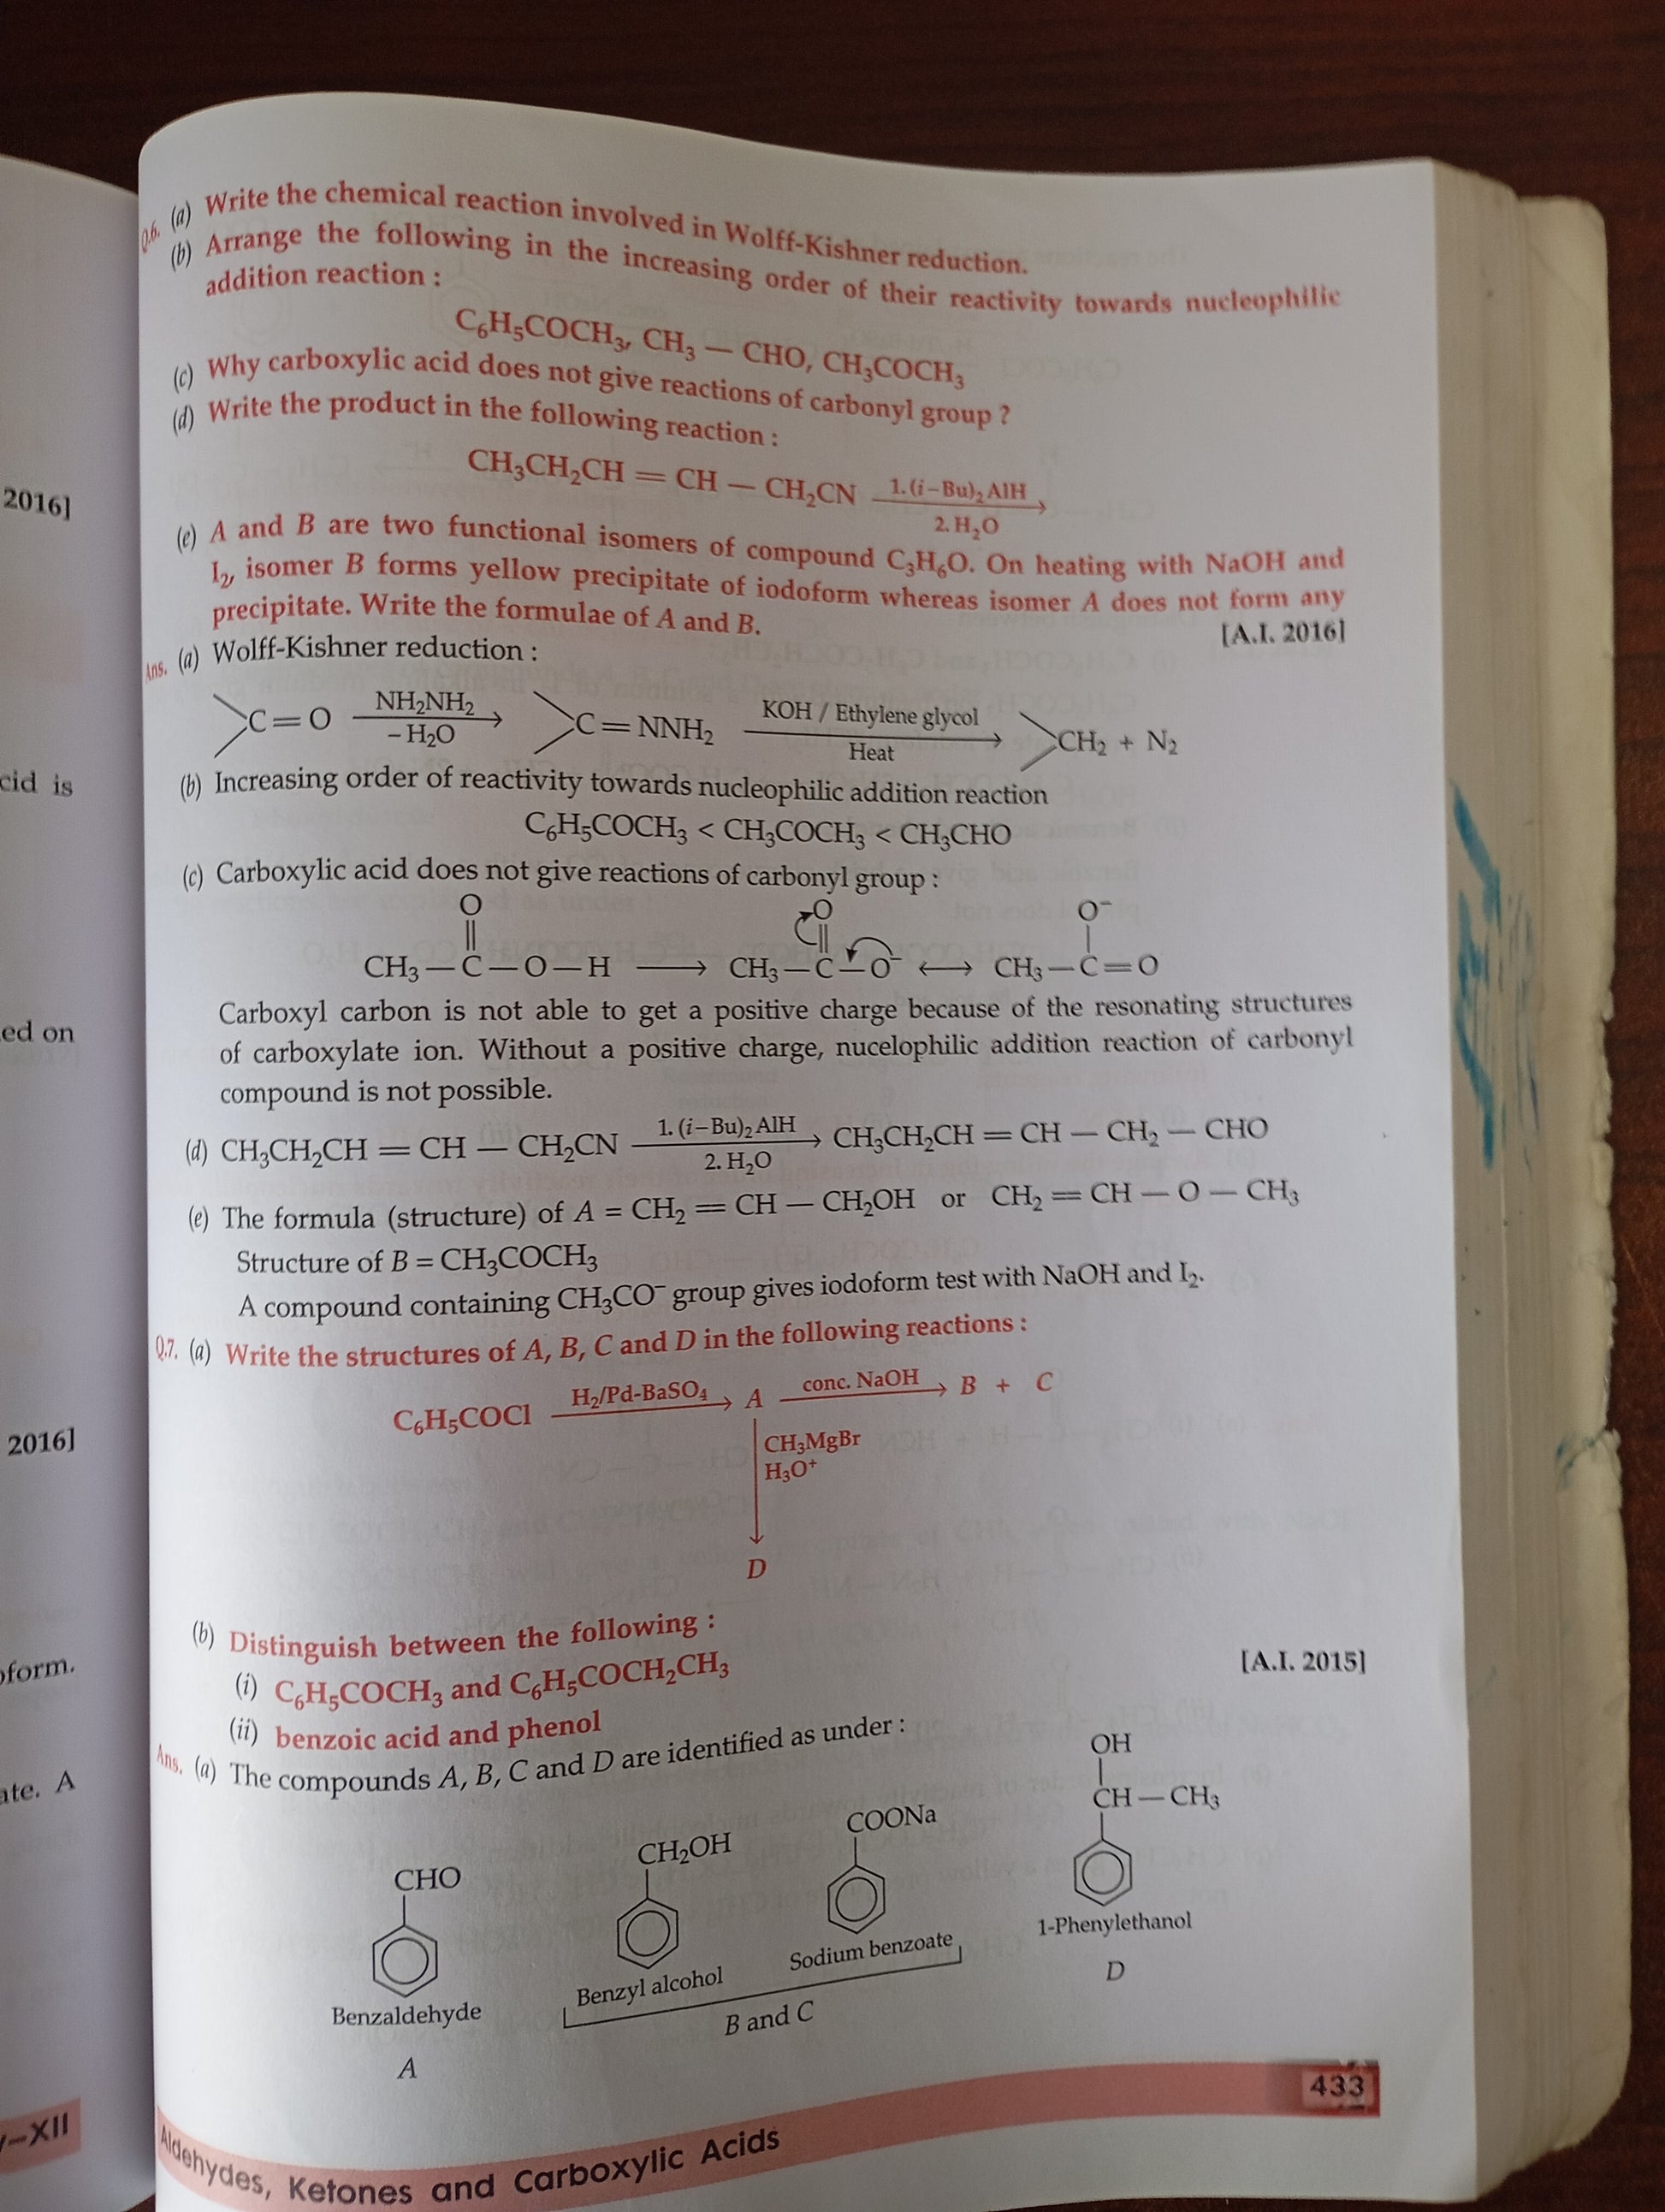 2016]
cid is
ed on
2016]
oform.
ate. A
–XII
Q.6. (a) Write the chemical reaction involved in Wolff-Kishner reduction.
(b) Arrange the following in the increasing order of their reactivity towards nucleophilic
addition reaction :
C₆H₅COCH₃, CH₃ — CHO, CH₃COCH₃
(c) Why carboxylic acid does not give reactions of carbonyl group ?
(d) Write the product in the following reaction :
CH₃CH₂CH = CH — CH₂CN 1. (i–Bu)₂ AlH → 2. H₂O
(e) A and B are two functional isomers of compound C₃H₆O. On heating with NaOH and
I₂, isomer B forms yellow precipitate of iodoform whereas isomer A does not form any
precipitate. Write the formulae of A and B.
[A.I. 2016]
Ans. (a) Wolff-Kishner reduction :
>C=O NH₂NH₂ → –H₂O >C=NNH₂ KOH / Ethylene glycol → Heat >CH₂ + N₂
(b) Increasing order of reactivity towards nucleophilic addition reaction
C₆H₅COCH₃ < CH₃COCH₃ < CH₃CHO
(c) Carboxylic acid does not give reactions of carbonyl group :
O O O⁻
CH₃—C—O—H → CH₃—C—O⁻ ↔ CH₃—C=O
Carboxyl carbon is not able to get a positive charge because of the resonating structures
of carboxylate ion. Without a positive charge, nucelophilic addition reaction of carbonyl
compound is not possible.
(d) CH₃CH₂CH = CH — CH₂CN 1. (i–Bu)₂ AlH → 2. H₂O CH₃CH₂CH = CH — CH₂ — CHO
(e) The formula (structure) of A = CH₂ = CH — CH₂OH or CH₂ = CH — O — CH₃
Structure of B = CH₃COCH₃
A compound containing CH₃CO⁻ group gives iodoform test with NaOH and I₂.
Q.7. (a) Write the structures of A, B, C and D in the following reactions :
C₆H₅COCl H₂/Pd-BaSO₄ → A conc. NaOH → B + C
CH₃MgBr
H₃O⁺
D
(b) Distinguish between the following :
(i) C₆H₅COCH₃ and C₆H₅COCH₂CH₃
[A.I. 2015]
(ii) benzoic acid and phenol
Ans. (a) The compounds A, B, C and D are identified as under :
OH
CH—CH₃
COONa
CH₂OH
CHO
1-Phenylethanol
Sodium benzoate
Benzyl alcohol
Benzaldehyde
D
B and C
A
433
Aldehydes, Ketones and Carboxylic Acids